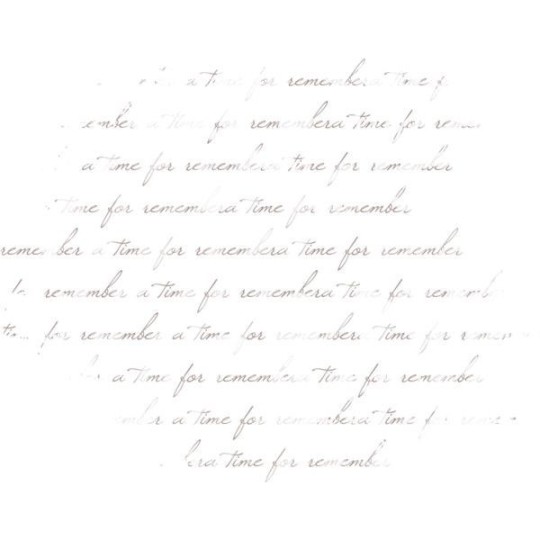 a Time for remembera Time f
ember a Time for remembera Time for rem
a Time for remembera Time for remember
Time for remembera Time for remember
remember a Time for remembera Time for remember
remember a Time for remembera Time for remember
for remember a Time for remember Time for remem
a Time for remembera Time for remember
ember a Time for remembera Time f reme
bera Time for remember